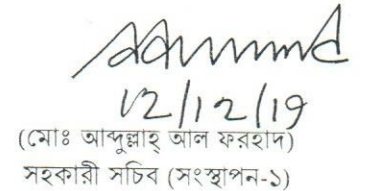 12/12/19
(মোঃ আব্দুল্লাহ্ আল ফরহাদ)
সহকারী সচিব (সংস্থাপন-১)